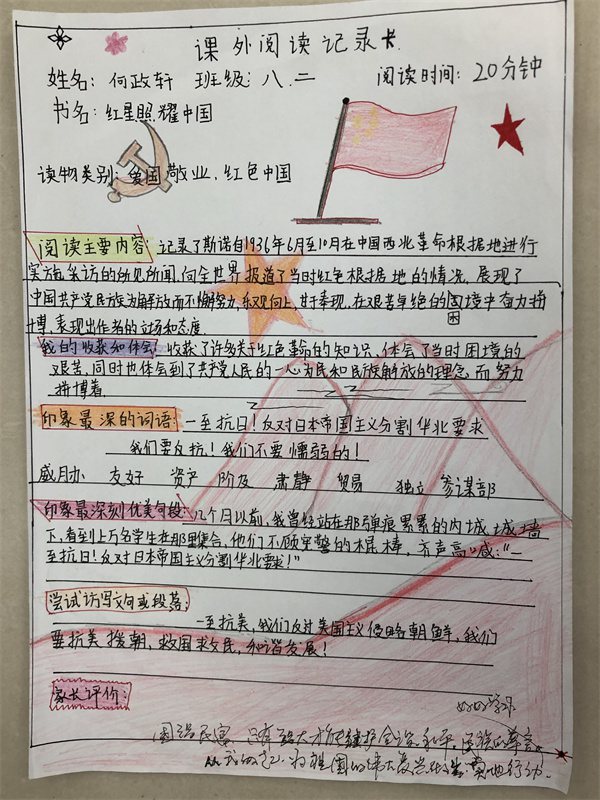 课外阅读记录卡
姓名：何政轩 班级：八.二 阅读时间：20分钟
书名：红星照耀中国
读物类别：爱国敬业，红色中国
阅读主要内容：记录了斯诺自1936年6月至10月在中国西北革命根据地进行
实施采访的所见所闻，向全世界报道了当时红色根据地的情况，展现了
中国共产党民族为解放而不懈努力，乐观向上，甘于奉现，在艰苦卓绝的困境中奋力拼
搏，表现出作者的立场和态度
我的收获和体会：收获了许多关于红色革命的知识，体会了当时困境的
艰苦，同时也体会到了共产党人民的一心为民和民族解放的理念而努力
拼搏着.
印象最深的词语：一至抗日！反对日本帝国主义分割华北要求
我们要反抗！我们不要懦弱的！
威月办 友好 资产 阶及 肃静 贸易 独立 参谋部
印象最深刻优美句段：几个月以前，我曾经站在那弹痕累累的内城城墙
下，看到上万名学生在那里集合，他们不顾宪警的棍棒，齐声高喊："一
至抗日！反对日本帝国主义分割华北要求！"
尝试访写文句或段落：
一至抗美，我们反对美国主义侵略朝鲜，我们
要抗美援朝，救国求民，和谐发展！
家长评价：
好好学习
国强民富 只有强大才能维护全设和平，民族的尊严
从我做起，为祖国的伟大复兴